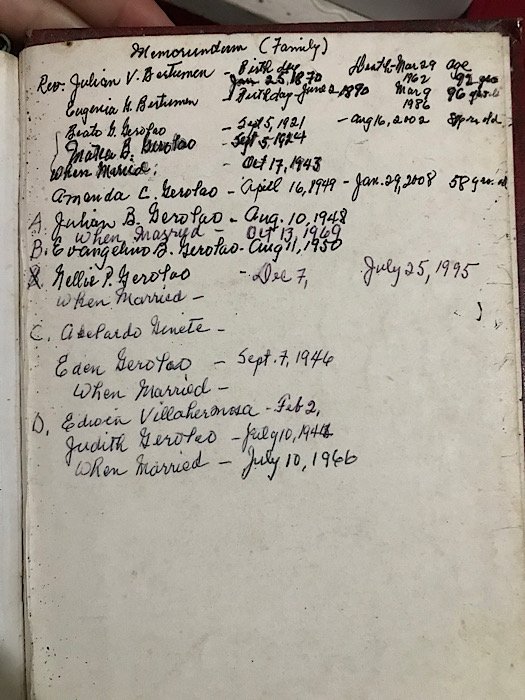 Memorundum (Family)
Birth day Death - Mar 29 age
Rev: Julian V. Bertumen - Jan. 25, 1870 1962 92 yrs
Eugenia H. Bertumen - Birthday - June 2 1890 Mar 9 1986 96 yrs old
Beato G. Gerolao - Sept 5, 1921 - Aug 16, 2002 old
Matea B. Gerolao - Sept 5, 1924
When Married: - Oct 17, 1943
Amanda C. Gerolao - April 16, 1949 - Jan. 29, 2008 58 yrs. old
A. Julian B. Gerolao - Aug. 10, 1948
When Married - Oct 13, 1969
B. Evangelino B. Gerolao - Aug 11, 1950
Nellie P. Gerolao - Dec 7, July 25, 1995
When Married -
C. Abelardo Genete -
Eden Gerolao - Sept. 7, 1946
When Married -
D. Edwin Villahermosa - Feb 2,
Judith Gerolao - July 10,
When Married - July 10, 1966